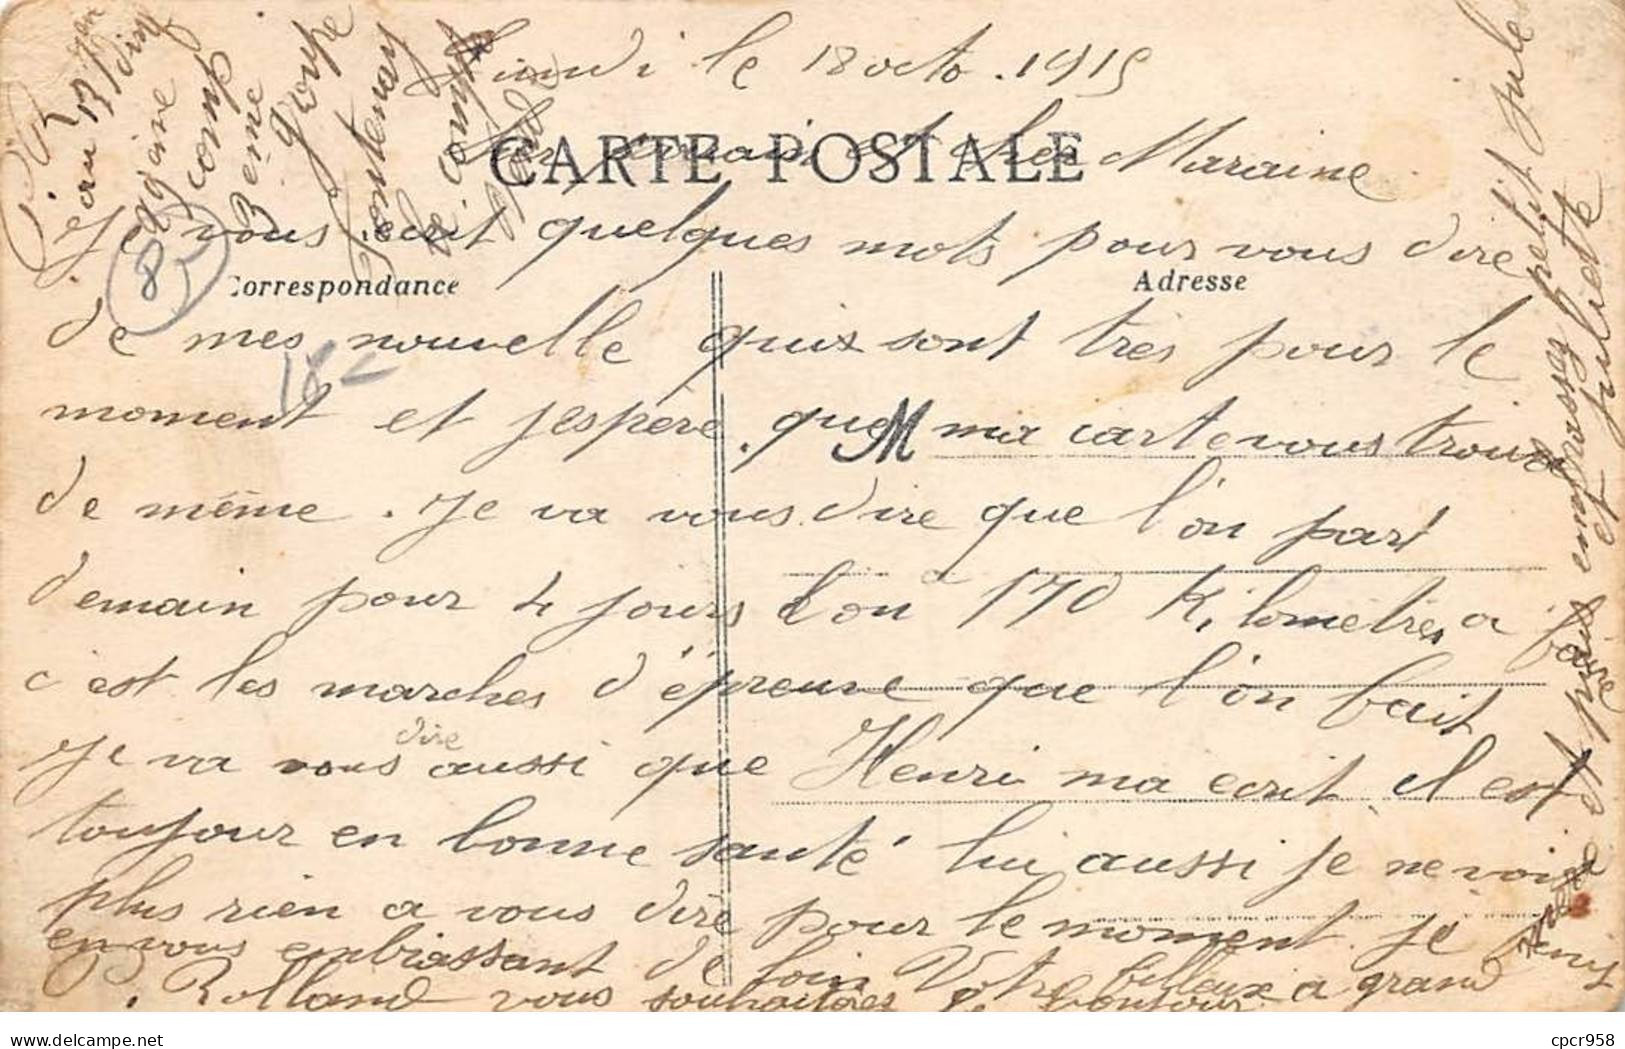 Lundi le 18 octo. 1915
CARTE POSTALE
et cher Maraine
Je vous ecrit quelques mots pour vous dire
Correspondance
Adresse
de mes nouvelle quis sont très pour le
moment et jespère que ma carte vous trouve
de même. Je va vous dire que l'on part
demain pour 4 jours l'on a 170 Kilometres a faire
c'est les marches d'épreuve que l'on fait
Je va vous dire aussi que Henri ma ecrit il est
toujour en bonne santé lui aussi je ne vois
plus rien a vous dire pour le moment je finis
en vous embrassant de loin Votre filleux a grand
P. Rolland vous souhaitères le bonjour
et puis embrasses petit Jule
et Juliette
Bème
comp
groupe
Fontenay
le comp
8
18-
M
cpcr958